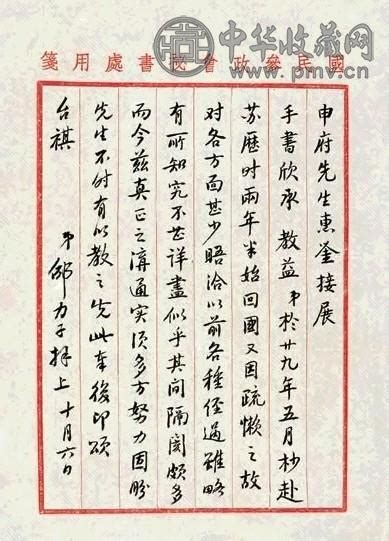 中华收藏网
www.pmv.cn
國民參政會秘書處用箋
申府先生惠鉴接展
手書欣承 教益 弟於廿九年五月杪赴
苏歷时兩年半始回國又因疏懒之故
对各方面甚少晤洽以前各種经過雖略
有所知究不甚详盡似乎其间隔阂颇多
而今兹真正之溝通实须多方努力固盼
先生不时有以教之先此奉復即頌
台祺
弟邵力子拜上 十月六日